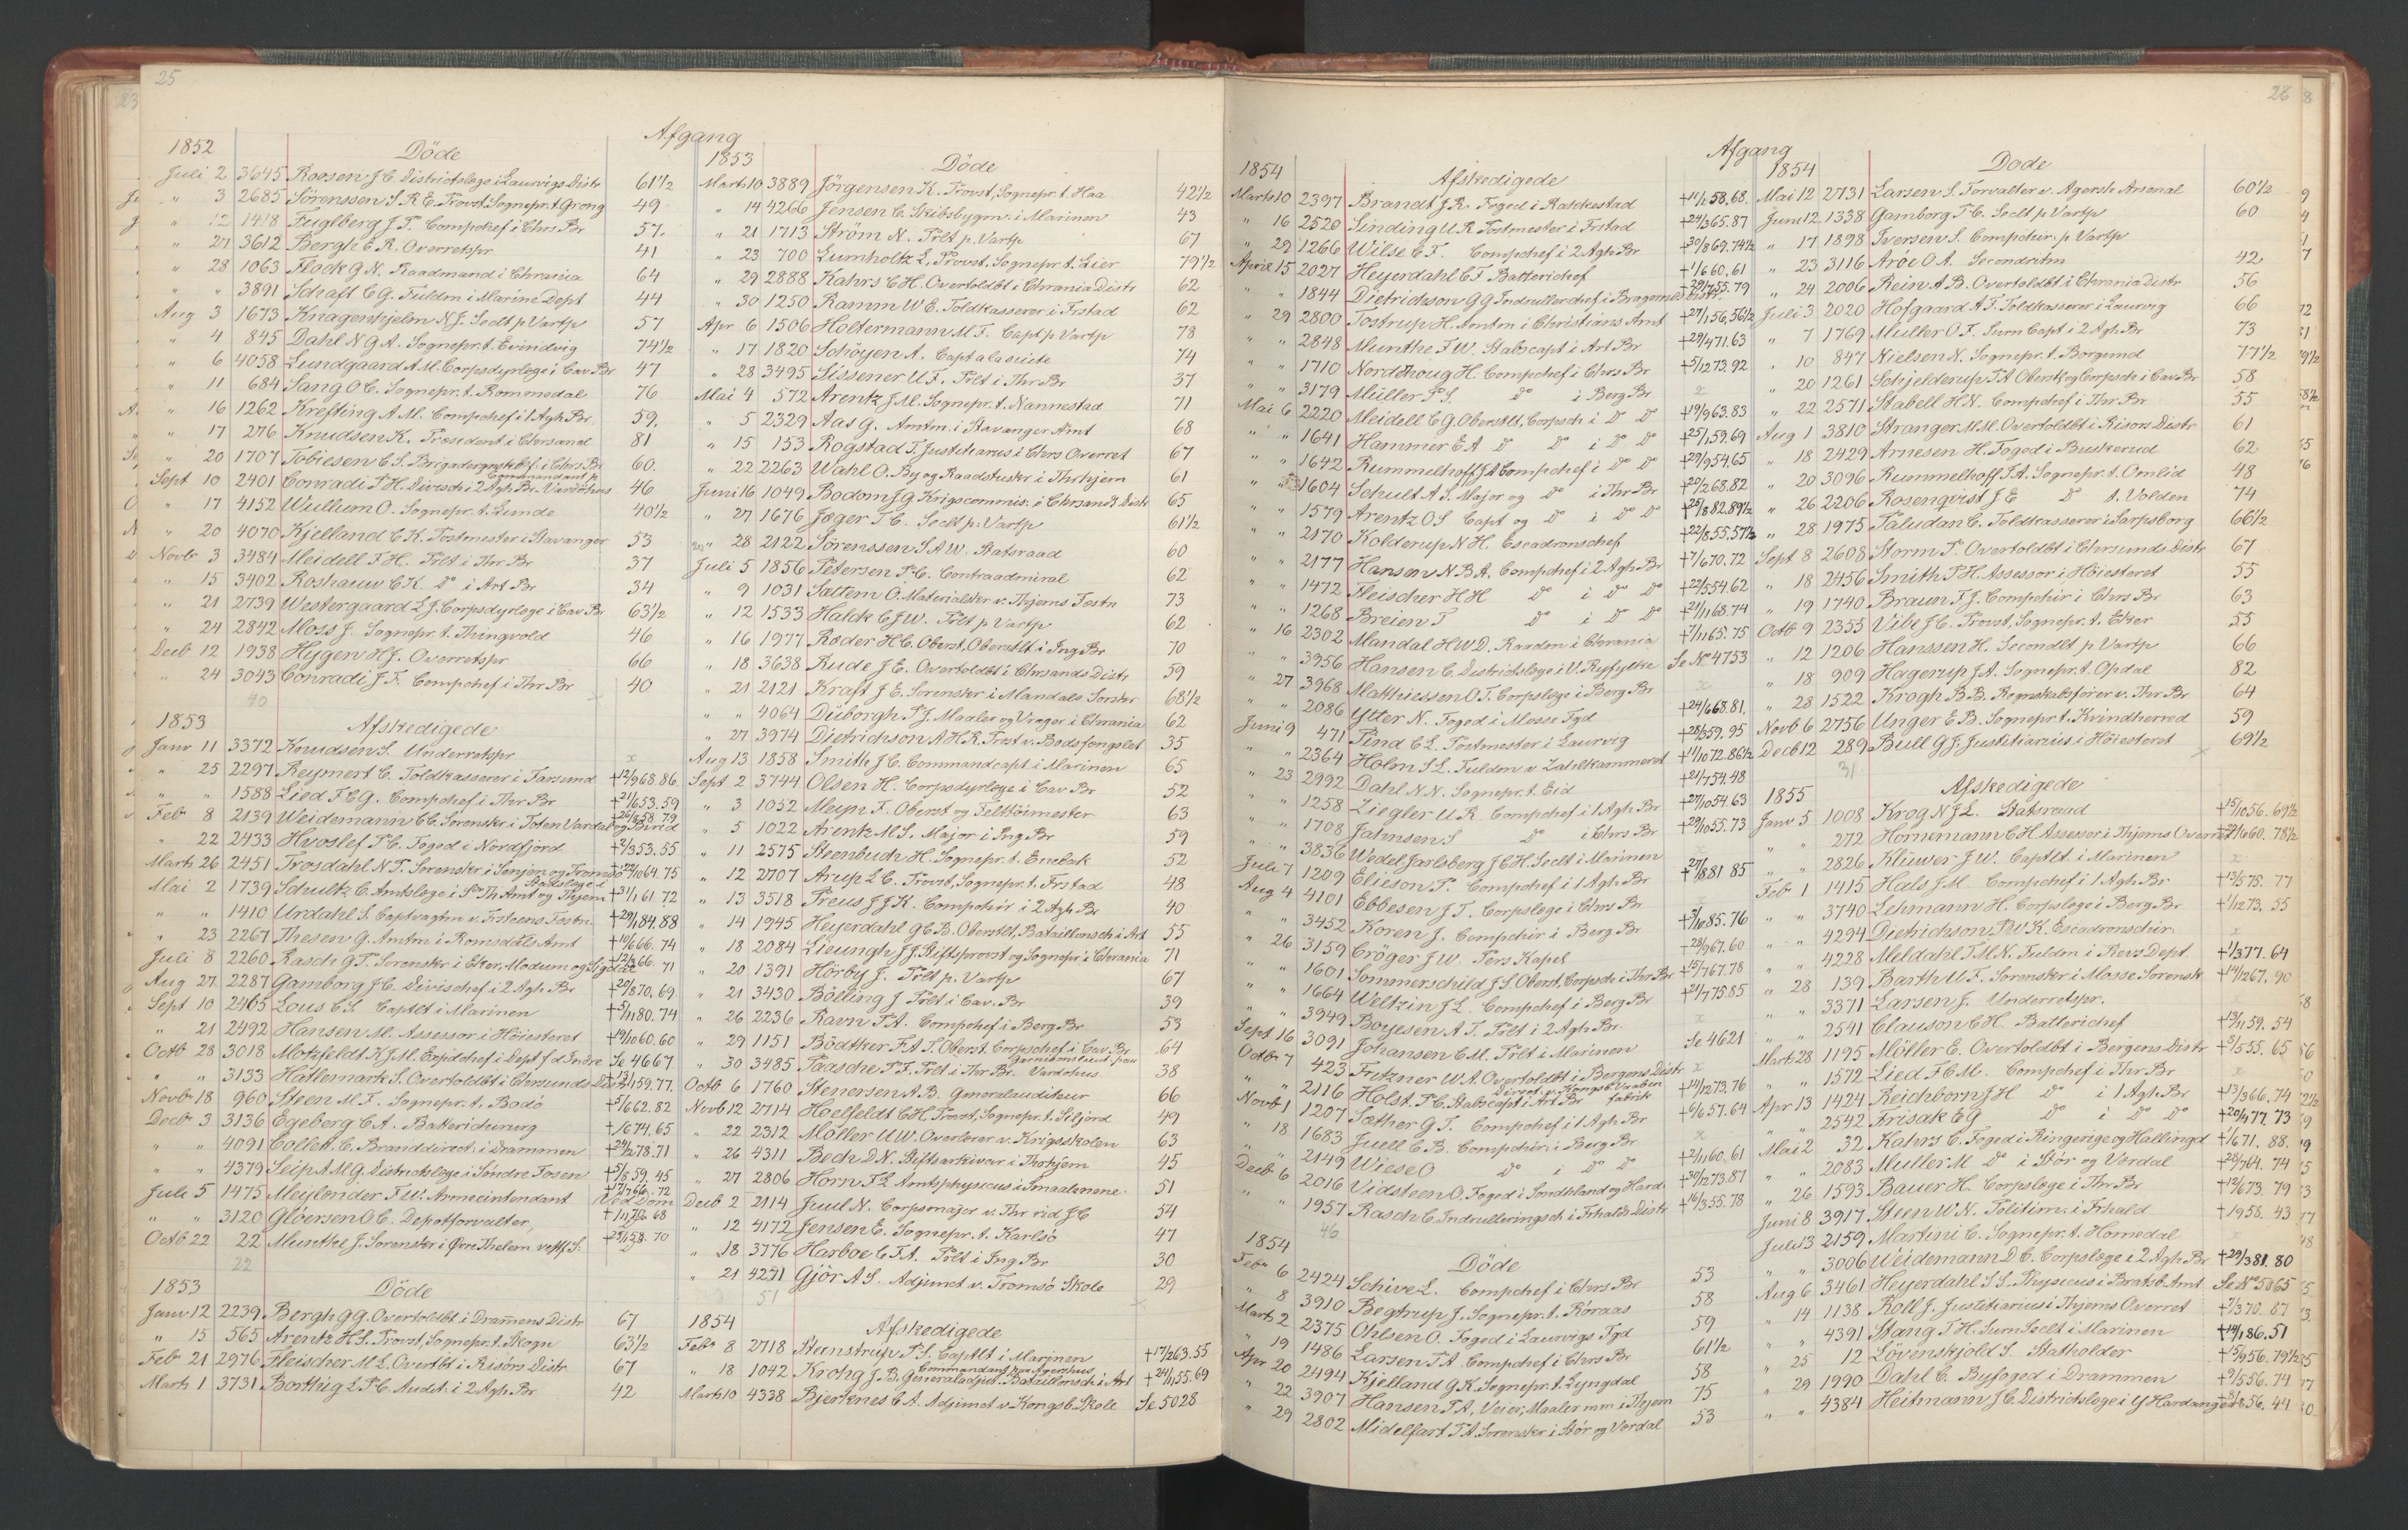 25
Afgang
1852
Döde
Juli 2 3645 Roosen J C Districtslæge i Laurvigs Distr 61½
" 3 2685 Sörenssen S. R. E. Provst, Sognepr. t. Grong 49
" 12 1418 Fuglberg J. P. Compchef i Chrs Br 57.
" 27 3612 Bergh E R. Overretspr 41
" 28 1063 Flock G N. Raadmand i Chrania 64
" " 3891 Schaft C G. Fuldm i Marine Dept 44
Aug 3 1673 Knagenhjelm N J. Seclt p Vartp 57
" 4 845 Dahl N G A. Sognepr. t. Evindvig 74½
" 6 4058 Lundgaard A M. Corpsdyrlæge i Cav Br 47
" 11 684 Sang O C. Sognepr. t. Rommedal 76
" 16 1262 Krefting A M. Compchef i 1 Agh Br 59,
" 17 276 Knudsen K. Præsident i Chrsand 81
" 20 1707 Tobiesen C S. Brigadergmkbef. i Chrs Br 60.
Sept 10 2401 Conradi P. H. Divisch i 2 Agh Br. Commandant p Vardöhus 46
" 17 4152 Wullum O. Sognepr. t. Lunde 40½
" 20 4070 Kjelland C K. Postmester i Stavanger 53
Novb 3 3484 Meidell F H. Prlt i Thr Br 37
" 15 3402 Roskauw C K. Do i Art Br 34
" 21 2739 Westergaard L J. Corpsdyrlæge i Cav Br 63½
" 24 2842 Moss J. Sognepr. t. Thingvold 46
Decb 12 1938 Hygen H J. Overretspr 66
" 24 3043 Conradi J F. Compchef i Thr Br 40
40
1853
Afskedigede
Janr 11 3372 Knudsen S. Underretspr x
" 25 2297 Reymert C. Toldkasserer i Farsund +12/9 68. 86
" " 1588 Lied F C G. Compchef i Thr Br +21/6 53. 59
Feb 8 2139 Weidemann C C. Sorenskr i Toten Vardal og Birid +26/8 58. 79
" 22 2433 Hvoslef P C. Foged i Nordfjord +2/3 53. 55
Marts 26 2451 Trosdahl N P. Sorenskr i Senjen og Tromsö +22/10 64. 75
Mai 2 1739 Schultz C. Amtslæge i S Th Amt og Stadslæge i Thjem +31/1 61. 72
" " 1410 Urdahl S. Captvagtm v. Frstens Festn. +29/1 84. 88
" 23 2267 Thesen G. Amtm i Romsdals Amt +10/6 66. 74
Juli 8 2260 Rasch G P. Sorenskr i Eker, Modum og Sigdal +12/2 66. 71
Aug 27 2287 Gamborg J C. Divischef i 2 Agh Br +20/8 70. 69
Sept 10 2465 Lous C S. Captlt i Marinen +5/11 80. 74
" 21 2492 Hansen M. Assessor i Höiesteret +19/10 60. 60
Octb 28 3018 Motzfeldt K J M. Expdchef i Dept f d Indre Se 4667
" " 3133 Hatlemark S. Overtoldbt i Chrsunds Distr +13/1 59. 77.
Novb 18 960 Steen M F. Sognepr. t. Bodö +5/6 62. 82
Decb 3 3136 Egeberg C A. Battericherurg +1/6 74. 65
" " 4091 Collett C. Branddirect. i Drammen +24/12 78. 71
" " 4379 Seip A M G. Districtslæge i Söndre Fosen +5/8 59. 45
Juli 5 1475 Meylænder F W. Armeeintendant +17/7 66. 72
" " 3120 Glöersen O C. Depotforvalter, +1/11 76 68
Octb 22 22 Munthe J. Sorenskr i Övre Thelem. vestfj. S. +25/1 58. 70
22
1853
Döde
Janr 12 2239 Bergh G G. Overtoldbt i Dramens Distr 67
" 15 565 Arentz H S. Provst, Sognepr. t. Skogn 63½
Feb 21 2976 Fleischer M L. Overtbt i Risörs Distr 67
Marts 1 3731 Borthig L P C. Audit. i 2 Agh Br 42
1853
Döde
Marts 10 3889 Jörgensen K. Provst, Sognepr. t. Haa 42½
" 14 4266 Jensen C. Skibsbygm. i Marinen 43
" 21 1713 Ström N. Prlt p. Vartp 67
" 23 700 Lumholtz L. Provst, Sognepr. t. Lier 79½
" 29 2888 Kahrs C H. Overtoldbt i Chrania Distr 62
" 30 1250 Ramm W E. Toldkasserer i Frstad 62
Apr 6 1506 Holtermann M F. Capt p Vartp 78
" 17 1820 Schöyen A. Capt a la suite 74
" 28 3495 Sissener U F. Prlt i Thr Br 37
Mai 4 572 Arentz J M. Sognepr. t. Nannestad 71
" 5 2329 Aas G. Amtm. i Stavanger Amt 68
" 15 153 Rogstad T. Justitiarius i Chrs Overret 67
" 22 2263 Wahl O. By og Raadstuskr i Thrhjem 61
Juni 16 1049 Bodom J G Krigscommis. i Chrsands Distr 65
" 27 1676 Jæger P C. Seclt p. Vartp 61½
" 28 2122 Sörenssen S A W. Statsraad 60
Juli 5 1856 Petersen P C. Contraadmiral 62
" 9 1031 Saltem O. Materialskr v. Thjems Festn 73
" 12 1533 Halck C J W. Prlt p Vartp 62
" 16 1977 Ræder H C. Oberst, Oberstlt i Ing Br 70
" 18 3638 Rude J E. Overtoldbt i Chrsands Distr 59
" 21 2121 Kraft J E. Sorenskr i Mandals Sorskr 68½
" " 4064 Düborgh P J. Maaler og Vrager i Chrania 62
" 27 3974 Dietrichson A H R. Prest v. Bodsfængslet 35
Aug 13 1858 Smith J C. Commandcapt. i Marinen 65
Sept 2 3744 Olsen H. Corpsdyrlæge i Cav Br 52
" 3 1052 Meyn F. Oberst og Felttöimester 63
" 5 1022 Arentz M S. Major i Ing Br 59
" 11 2575 Steenbuch H. Sognepr. t. Enebak 52
" 12 2707 Arup L C. Provst, Sognepr. t. Frstad 48
" 13 3518 Preus J J K. Compchir i 2 Agh Br 40
" 14 1945 Heyerdahl G C B. Oberstlt. Bataillonsch i Art 55
" 18 2084 Lieungh J J. Stiftsprovst og Sognepr i Chrania 71
" 20 1391 Hörby J. Prlt p. Vartp 67
" 21 3430 Bölling J Prlt i Cav. Br 39
" 26 2236 Ravn P A. Compchef i Berg Br 53
" 29 1151 Bödtker F A P. Oberst. Corpschef i Cav. Br 64
" 30 3485 Paasche P F. Prlt i Thr Br. Garnisonskirurg paa Vardöhus 38
Octb 6 1760 Stenersen A B. Generalauditeur 66
Novb 12 2714 Hoelfeldt C H. Provst, Sognepr. t. Siljord 49
" 22 2312 Möller U W. Overlærer v. Krigsskolen 63
" 26 4311 Bech D N. Stiftsarkivar i Thrhjem 45
" 27 2806 Horn F L Amtsphysicus i Smaalenene. 51
Decb 2 2114 Juul N. Corpsmajor v. Thr rid J C 54
" 12 4172 Jensen E. Sognepr. t. Karlsö 47
" 18 3776 Harboe C F A. Prlt i Ing Br 30
" 21 4271 Gjör A S. Adjunct v. Tromsö Skole 29
51
1854
Afskedigede
Febr 8 2718 Steenstrup P S. Captlt i Marinen +17/2 63. 55
" 18 1042 Krohg J B. Generaladjut. Commandant paa Agershuus Bataillonsch i Art +24/11 55. 69
Marts 10 4338 Bjerknes C A. Adjunct v. Kongsb. Skole Se 5028
26
Afgang
1854
Afskedigede
Marts 10 2397 Brandt J R. Foged i Rakkestad +11/2 58. 68.
" 16 2520 Sinding U R Postmester i Frstad +24/3 65. 87
" 29 1266 Wilse C F. Compchef i 2 Agh Br +30/8 69. 74½
April 15 2027 Heyerdahl C F Batterichef +1/6 60. 61
" " 1844 Dietrichson G G Indrullerchef i Bragernes Distr. +29/7 55. 79
" 29 2800 Tostrup H. Amtm i Christians Amt +27/1 56, 56½
" " 2848 Munthe F W. Stabscapt i Art Br +29/4 71. 63
" " 1710 Nordthoug H. Compchef i Chrs Br +5/12 73. 92
" " 3179 Müller P S. Do i Berg Br x
Mai 6 2220 Meidell C G. Oberstlt, Corpsch i Do Do +19/9 63. 83
" " 1641 Hammer E A Do Do i Do Do +25/1 59. 69
" " 1642 Rummelhoff J A Compchef i Do Do +29/9 54. 65
" " 1604 Schult A S. Major og Do i Thr Br +22/2 68. 82
" " 1579 Arentz O S Capt og Do i Do Do +25/8 82. 89½
" " 2170 Kolderup N H. Escadronschef +22/8 55. 57½
" " 2177 Hansen N B A. Compchef i 2 Agh Br +7/6 70. 72
" " 1472 Fleischer H H Do i Do Do +22/5 54. 62
" " 1268 Breien T Do i Do Do +21/11 68. 74
" 16 2302 Mandal H W D. Raadm i Chrania +7/11 65. 75
" " 3956 Hansen C. Districtslæge i U. Ryfylke Se No 4753
" 27 3968 Matthiessen O T. Corpslæge i Berg Br x
" " 2086 Ytter N. Foged i Mosse Fgd +24/6 68. 81.
Juni 9 471 Pind C L. Postmester i Laurvig +28/3 59. 95
" " 2364 Holm S L. Fuldm v Zahlkammeret +11/10 72. 86½
" 23 2992 Dahl N N. Sognepr. t. Eid +21/7 54. 48
" " 1258 Ziegler U R Compchef i 1 Agh Br +27/10 54. 63
" " 1708 Jahnsen S Do i Chrs Br +29/10 55. 73
" " 3836 Wedel Jarlsberg J C H. Seclt i Marinen x
Juli 7 1209 Elieson P. Compchef i 1 Agh Br +27/8 81 85
Aug 4 4101 Ebbesen J T. Corpslæge i Chrs Br x
" " 3452 Koren J. Compchir i Berg Br +3/16 85. 76
" 26 3159 Cröger J W. Pers Kapel +28/9 67. 60
" " 1601 Sommerschild J S. Oberst, Corpsch i Thr Br +15/7 67. 78
" " 1664 Weltzin J L. Compchef i Berg Br +21/7 75. 85
" " 3949 Boyesen A T. Prlt i 2 Agh Br x
Sept 16 3091 Johansen C M. Prlt i Marinen Se 4621
Octbr 7 423 Fritzner W A. Overtoldbt i Bergens Distr x
" " 2116 Holst. P C. Stabscapt i Art Br Direct v. Kongsb. Vaabenfabrik +14/12 73. 76
Novb 1 1207 Sæther G T. Compchef i 1 Agh Br +6/6 57. 64
" 18 1683 Juell C B. Compchir. i Berg Br x
" " 2149 Wiese O Do i Do Do +2/11 60. 61
Decb 6 2016 Vidsteen O. Foged i Söndhland og Hard +30/12 73. 87
" " 1957 Rasch C. Indrulleringsch i Frhalds Distr +16/3 55. 78
46
1854
Döde
Febr 6 2424 Schive L. Compchef i Chrs Br 53
" 8 3910 Begtrup J. Sognepr. t. Röraas 58
Marts 2 2375 Ohlsen O. Foged i Laurvigs Fgd 59
" 19 1486 Larsen P A. Compchef i Chrs Br 61½
Apr 20 2494 Kjelland G K. Sognepr. t. Lyngdal 58
" 22 3907 Hansen P A, Veier, Maaler mm i Thjem 75
" 29 2802 Midelfart P A. Sorenskr i Stör og Værdal 53
1854
Döde
Mai 12 2731 Larsen S. Forvalter v. Agersh Arsenal 60½
Juni 12 1338 Gamborg P C. Seclt p Vartp 60
" 17 1898 Iversen S. Compchir. p Vartp
" 23 3116 Aröe O A. Secondritm 42
" 24 2006 Rein A B. Overtoldbt i Chrania Distr 56
Juli 3 2020 Hofgaard A F. Toldkasserer i Laurvig 66
" 7 1769 Muller O F. Surn Capt i 2 Agh Br 73
" 10 847 Nielsen N. Sognepr. t. Borgund 77½
" 20 1261 Schjelderup P A Oberstl og Corpsch i Cav Br 58
" 22 2571 Stabell H N. Compchef i Thr Br 55
Aug 1 3810 Stranger M M. Overtoldbt i Risörs Distr 61
" 18 2429 Arnesen H. Foged i Buskerud 62
" 20 3096 Rummelhoff P A. Sognepr. t. Omlid 48
" 26 2206 Rosenqvist J E Do t. Volden 74
" 28 1975 Paludan C. Toldkasserer i Sarpsborg 66½
Sept 8 2608 Storm P. Overtoldbt i Chrsunds Distr 67
" 18 2456 Smith P H. Assessor i Höiesteret 55
" 19 1740 Braun F J. Compchir i Chrs Br 63
Octb 9 2355 Vibe J C. Provst, Sognepr. t. Eker 55
" 12 1206 Hanssen H. Secondlt p Vartp 66
" 18 909 Hagerup J A. Sognepr. t. Opdal 82
" 28 1522 Krogh B B. Regnskabsförer v. Thr Br 64
Novb 6 2756 Unger E B. Sognepr t. Kvindherred 59
Decb 12 289 Bull G J. Justitiarius i Höiesteret 69½
31.
1855
Afskedigede
Janr 5 1008 Krog N J L. Statsraad +15/10 56. 69½
" " 272 Hornemann C H. Assessor i Thjems Overret +24/1 60. 78½
" " 2826 Klüwer J W. Captlt. i Marinen x
Feb 1 1415 Hals J M. Compchef i 1 Agh Br +13/5 75. 77
" " 3740 Lehmann H. Corpslæge i Berg Br +1/12 73. 55
" " 4294 Dietrichson P W K. Escadronschir. x
" " 4228 Meldahl T M N. Fuldm i Revs Dept +1/3 77. 64
" 28 139 Barth M F. Sorenskr i Mosse Sorensk +14/12 67. 90
" " 3371 Larsen J. Underretspr. x
" " 2541 Clauson C H. Batterichef +13/11 59. 54
Marts 28 1195 Möller E. Overtoldbt i Bergens Distr +3/5 55. 65
" " 1572 Lied F C M. Compchef i Thr Br x
Apr 13 1424 Reichborn J H Do i 1 Agh Br +13/3 66. 74
" " 2542 Frisak E G Do i Do Do +20/4 77. 73
Mai 2 32 Kahrs C. Foged i Ringerige og Hallingd +1/6 71. 88.
" " 2083 Muller M Do i Stör og Værdal +28/7 64. 74
" 26 1593 Bauer H. Corpslæge i Thr Br +12/6 73. 79
Juni 8 3917 Steen W N. Politim. i Frhald +1/9 58. 43
Juli 13 2159 Martini C. Sognepr. t. Hornedal x
" " 3006 Weidemann D C. Corpslæge i 2 Agh Br +29/3 81. 80
Aug 6 3461 Heyerdahl S S. Physicus i Bratsb. Amt Se No 5065
" 14 1138 Roll J. Justitiarius i Thjems Overret +1/3 70. 87
" " 4391 Stang P H. Surn Seclt i Marinen +14/1 86. 51
" 25 12 Lövenskjold S. Statholder +15/9 56. 79½
" 29 1990 Dahl C. Byfoged i Drammen +9/5 56. 74
" " 4384 Heitmann J C. Districtslæge i Y Hardanger +8/1 56. 44